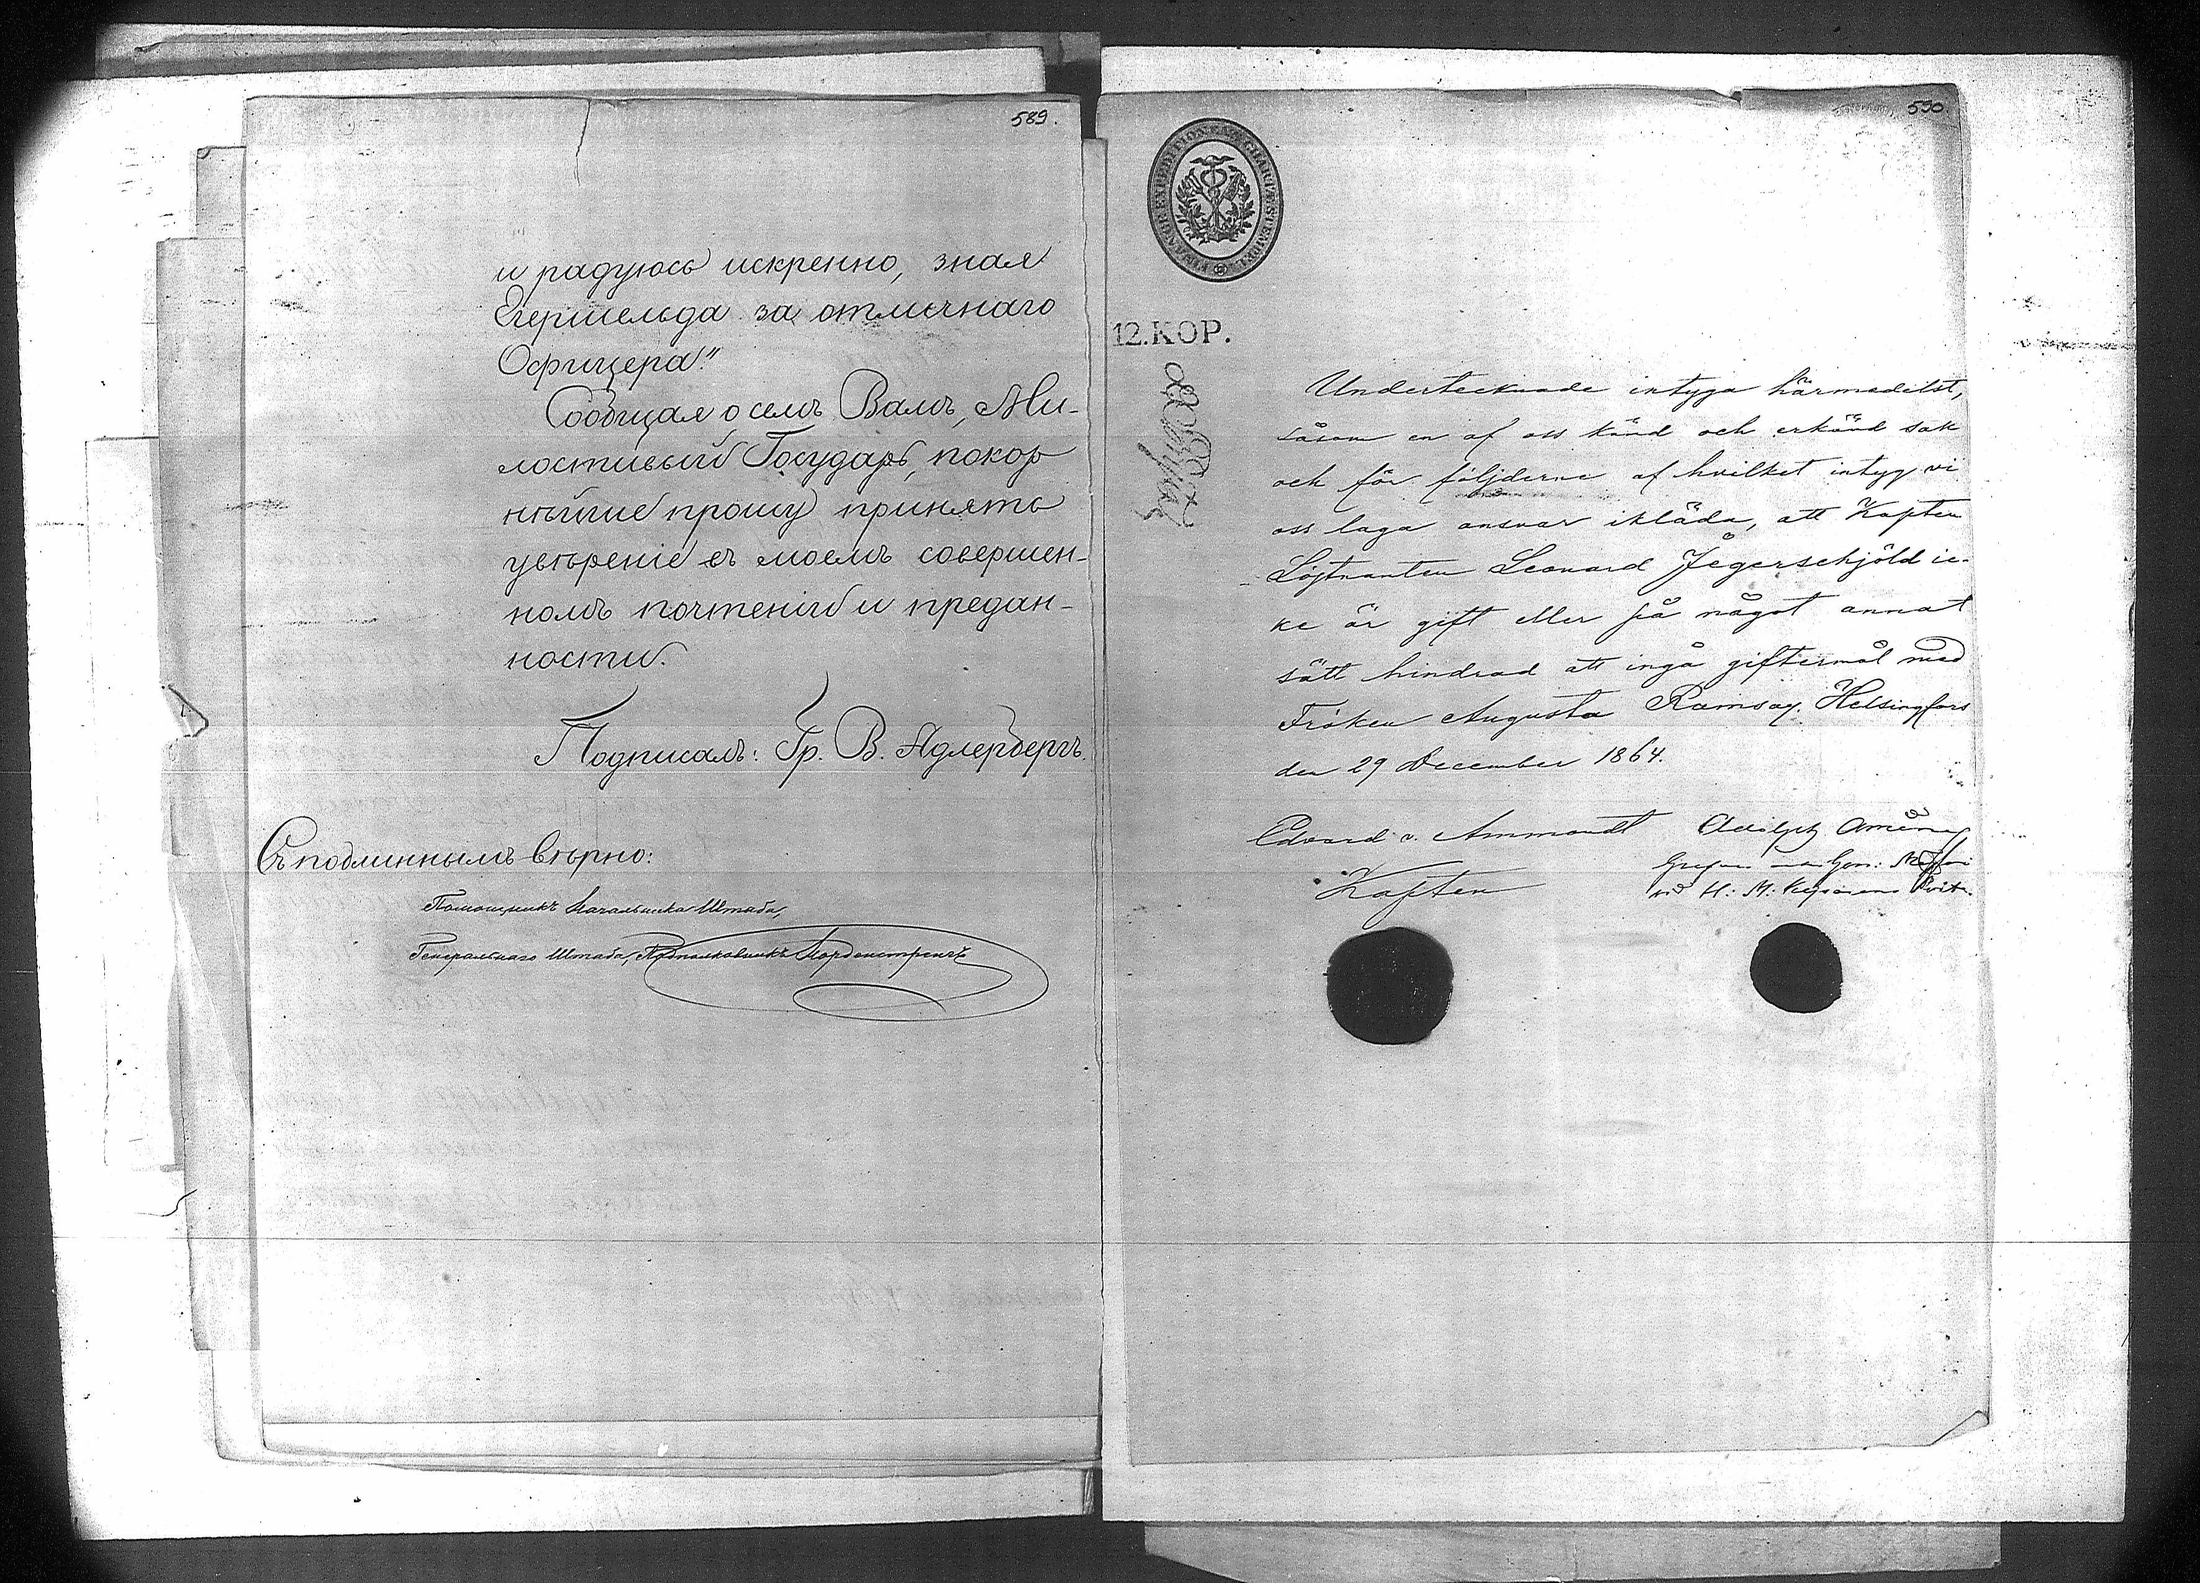 589.
и радуюсь искренно, зная
Егершельда за отличнаго
Офицера".
Сообщая о семъ Вамъ, Ми-
лостивый Государь, покор
нѣйше прошу принять
увѣреніе въ моемъ совершен-
номъ почтеніи и предан-
ности.
Подписалъ: Гр. В. Адлербергъ.
Съ подлиннымъ вѣрно:
Помощникъ Начальника Штаба,
Генеральнаго Штаба, Подполковникъ Норденстренгъ
590.
12.KOP.
Undertecknade intyga härmedelst,
såsom en af oss känd och erkänd sak
och för följderne af hvilket intyg vi
oss laga ansvar ikläda, att Kapten
Löjtnanten Leonard Jägerschjöld ic-
ke är gift eller på något annat
sätt hindrad att ingå giftermål med
Fröken Augusta Ramsay. Helsingfors
den 29 December 1864.
Edvard v. Ammondt
Adolph Aminoff
Kapten
vid H: M: Kejsarens Svit.